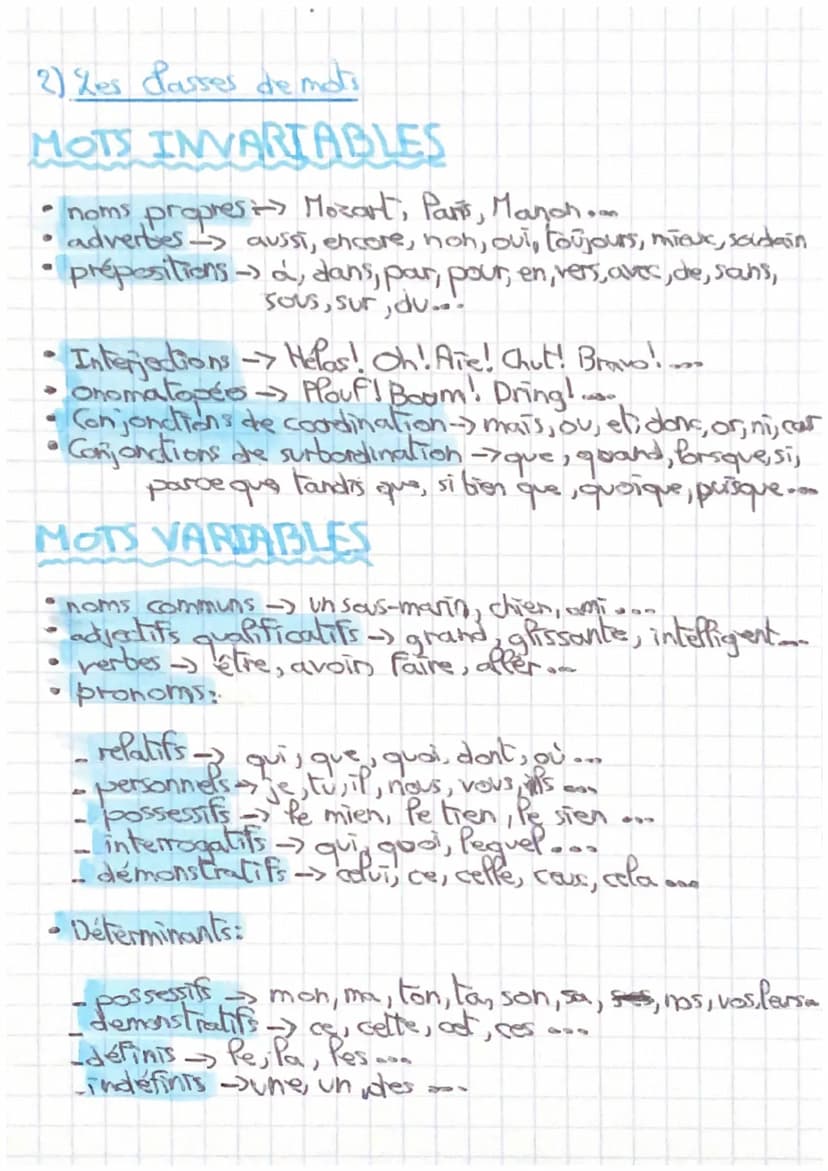 2) Les classes de mots
MOTS INVARIABLES
• noms propres :→ Mozart, Paris, Manon...
• adverbes → aussi, encore, non, oui, toujours, mieux, soudain
• prépositions → à, dans, par, pour, en, vers, avec, de, sans,
sous, sur, du...
• Interjections → Hélas! Oh! Aïe! Chut! Bravo! ...
• onomatopées → Plouf! Boom! Dring! ...
• Conjonctions de coordination → mais, ou, et, donc, or, ni, car
• Conjonctions de surbordination → que, quand, lorsque, si,
parce que tandis que, si bien que, quoique, puisque...
MOTS VARIABLES
• noms communs → un sous-marin, chien, ami ...
• adjectifs qualificatifs → grand, glissante, intelligent...
• verbes → être, avoir, faire, aller...
• pronoms:
- relatifs → qui, que, quoi, dont, où ...
- personnels → je, tu, il, nous, vous, ils ...
- possessifs → le mien, le tien, le sien ...
- interrogatifs → qui, quoi, lequel ...
- démonstratifs → celui, ce, celle, ceux, cela ...
• Déterminants:
- possessifs → mon, ma, ton, ta, son, sa, nos, vos,
- demonstratifs → ce, cette, cet, ces ...
- définis → le, la, les ...
- indéfinis → une, un, des ...